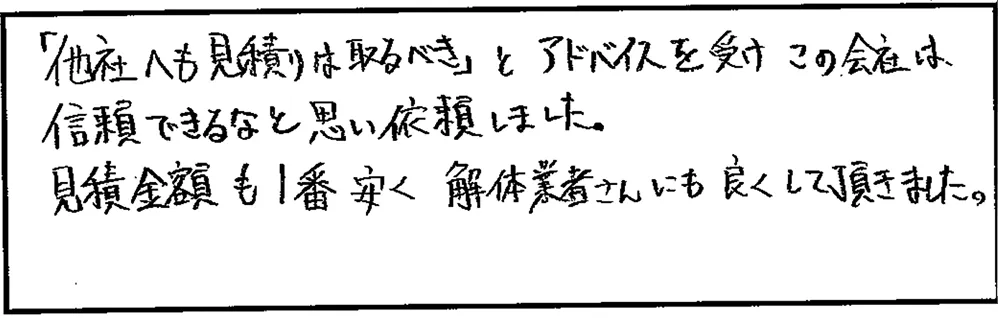 「他社へも見積りは取るべき」と アドバイスを受け この会社は
信頼できるなと思い依頼しました。
見積金額も1番安く 解体業者さんにも良くして頂きました。